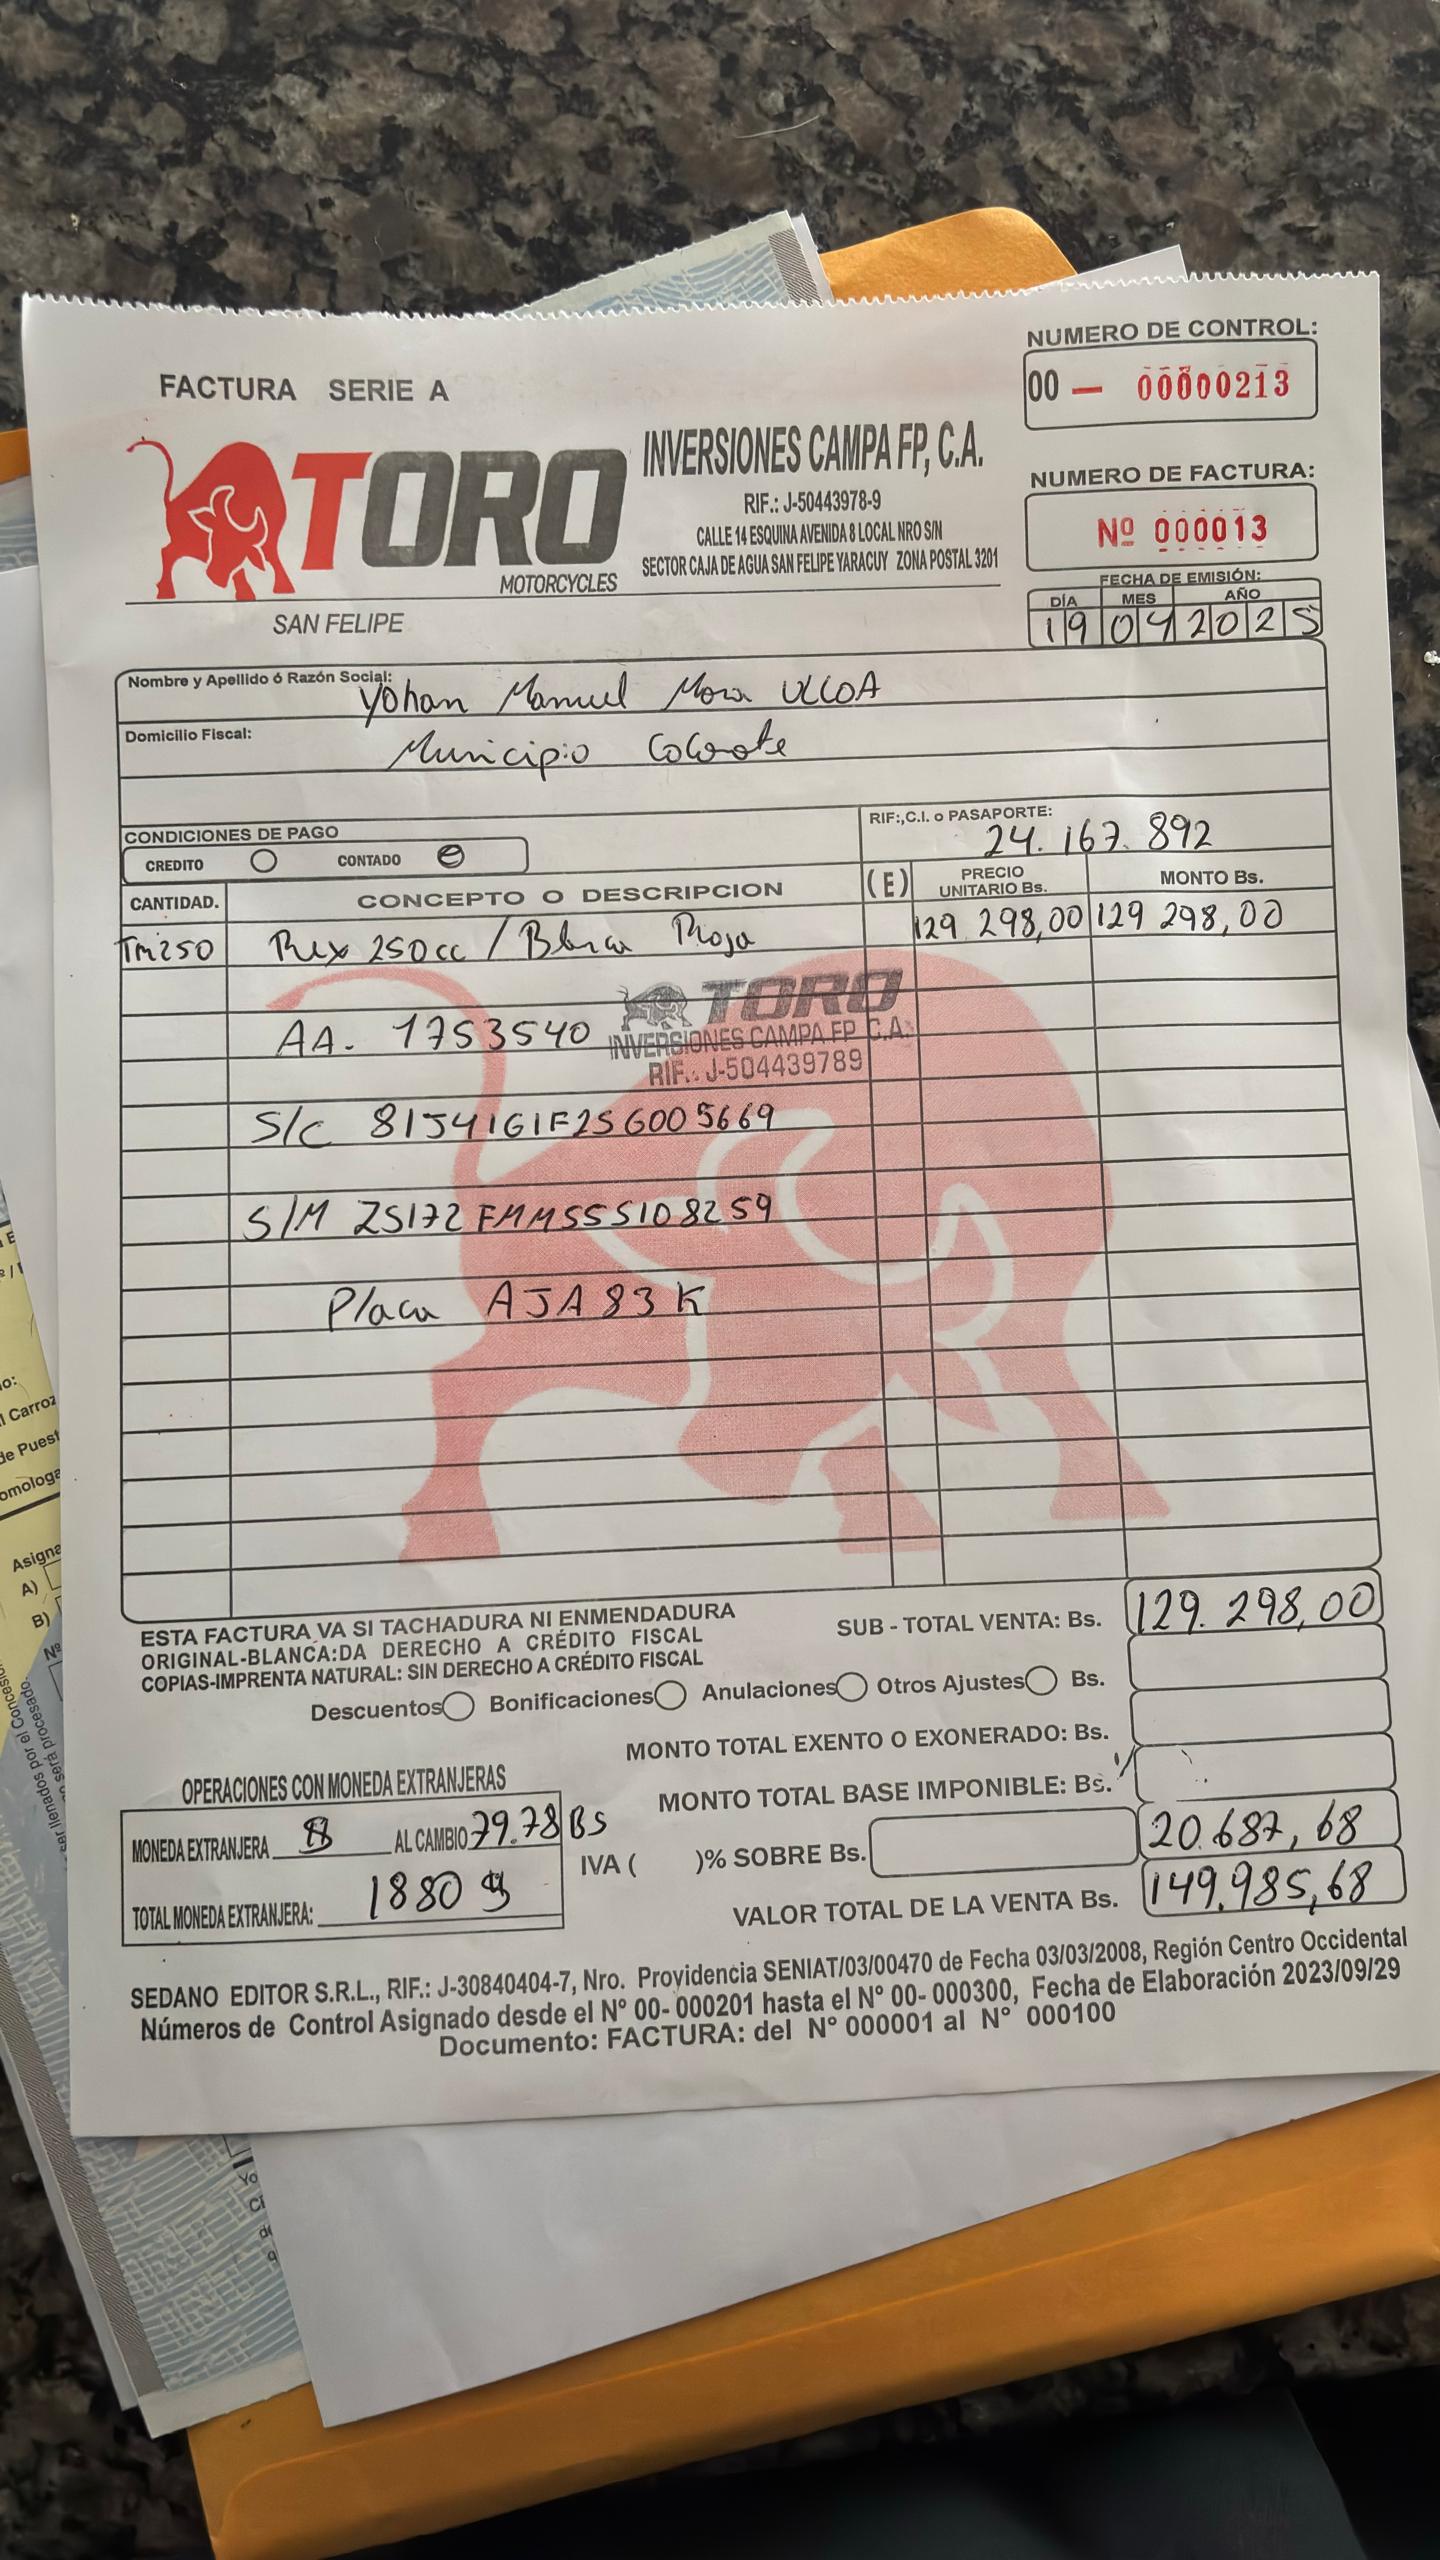 FACTURA SERIE A
NUMERO DE CONTROL:
00 — 00000213
TORO
MOTORCYCLES
SAN FELIPE
INVERSIONES CAMPA FP, C.A.
RIF.: J-50443978-9
CALLE 14 ESQUINA AVENIDA 8 LOCAL NRO S/N
SECTOR CAJA DE AGUA SAN FELIPE YARACUY ZONA POSTAL 3201
NUMERO DE FACTURA:
Nº 000013
FECHA DE EMISIÓN:
DÍA MES AÑO
19 04 2025
Nombre y Apellido ó Razón Social: Yohan Manuel Mora ULLOA
Domicilio Fiscal: Municipio Cocorote
CONDICIONES DE PAGO
CREDITO CONTADO
RIF:,C.I. o PASAPORTE:
24.167.892
CANTIDAD. CONCEPTO O DESCRIPCION (E) PRECIO UNITARIO Bs. MONTO Bs.
Tm250 Rex 250cc / Blanca Roja 129 298,00 129 298,00
TORO
INVERSIONES CAMPA FP, C.A.
RIF.: J-504439789
AA. 1753540
S/C 81J41G1F2SG005669
S/M ZS172FMM5SS108259
Placa AJA83K
ESTA FACTURA VA SI TACHADURA NI ENMENDADURA
ORIGINAL-BLANCA:DA DERECHO A CRÉDITO FISCAL
COPIAS-IMPRENTA NATURAL: SIN DERECHO A CRÉDITO FISCAL
SUB - TOTAL VENTA: Bs. 129.298,00
Descuentos Bonificaciones Anulaciones Otros Ajustes Bs.
MONTO TOTAL EXENTO O EXONERADO: Bs.
MONTO TOTAL BASE IMPONIBLE: Bs.
OPERACIONES CON MONEDA EXTRANJERAS
MONEDA EXTRANJERA $ AL CAMBIO 79.78 Bs
TOTAL MONEDA EXTRANJERA: 1880 $
IVA ( )% SOBRE Bs. 20.687,68
VALOR TOTAL DE LA VENTA Bs. 149.985,68
SEDANO EDITOR S.R.L., RIF.: J-30840404-7, Nro. Providencia SENIAT/03/00470 de Fecha 03/03/2008, Región Centro Occidental
Números de Control Asignado desde el N° 00- 000201 hasta el N° 00- 000300, Fecha de Elaboración 2023/09/29
Documento: FACTURA: del N° 000001 al N° 000100